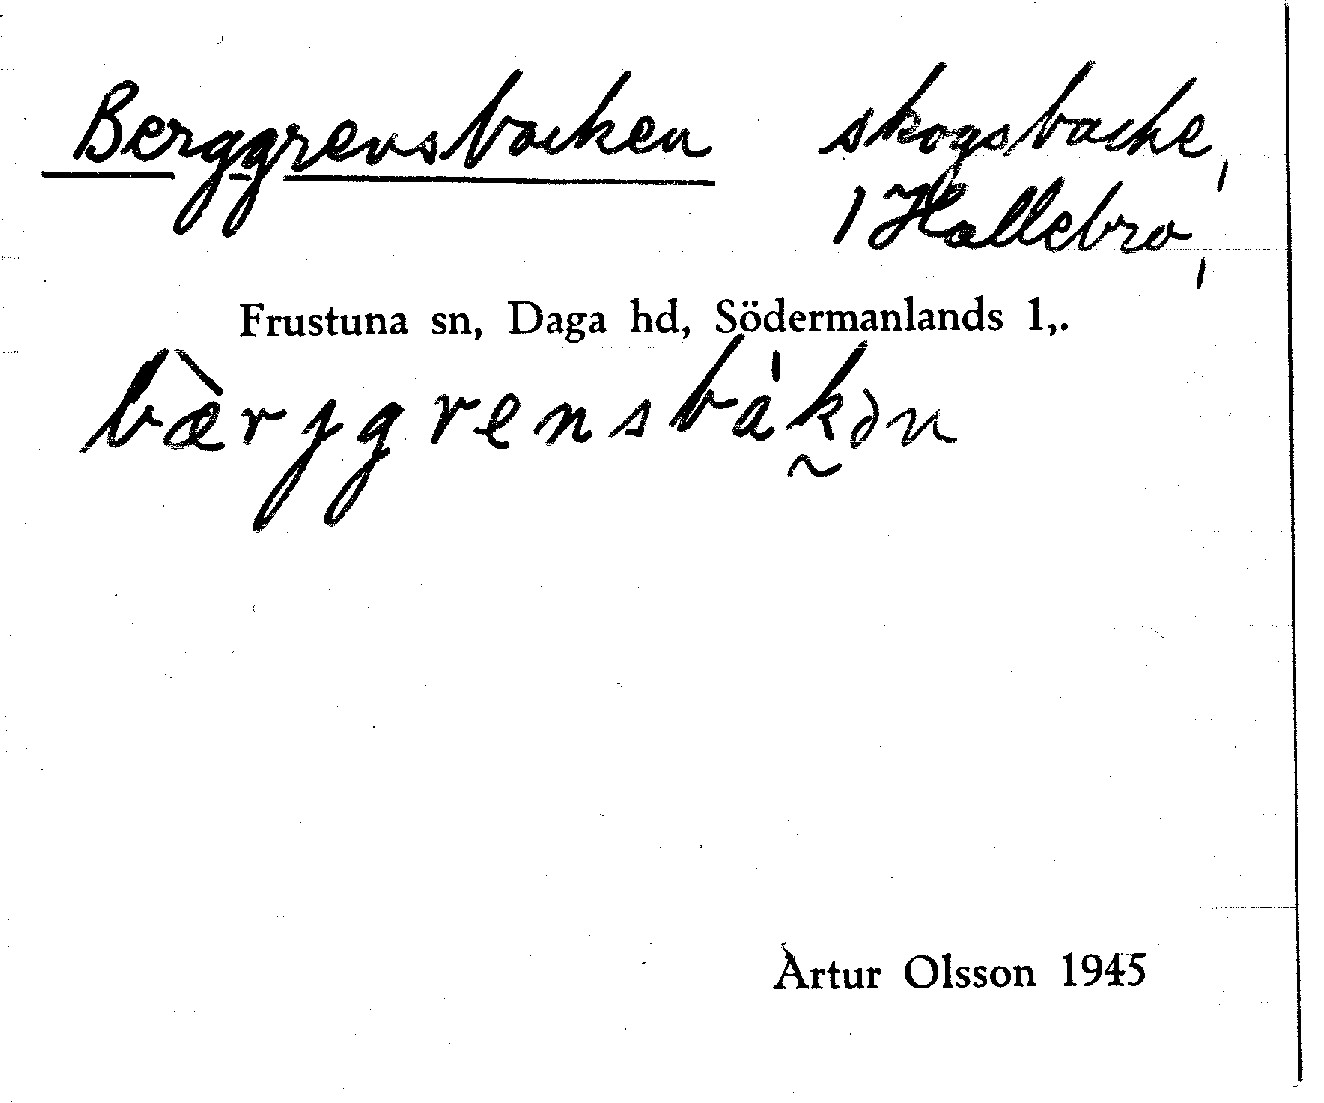 Berggrensbacken skogsbacke,
1 Hallebro,
Frustuna sn, Daga hd, Södermanlands l,.
bærjgrensbakən
Artur Olsson 1945